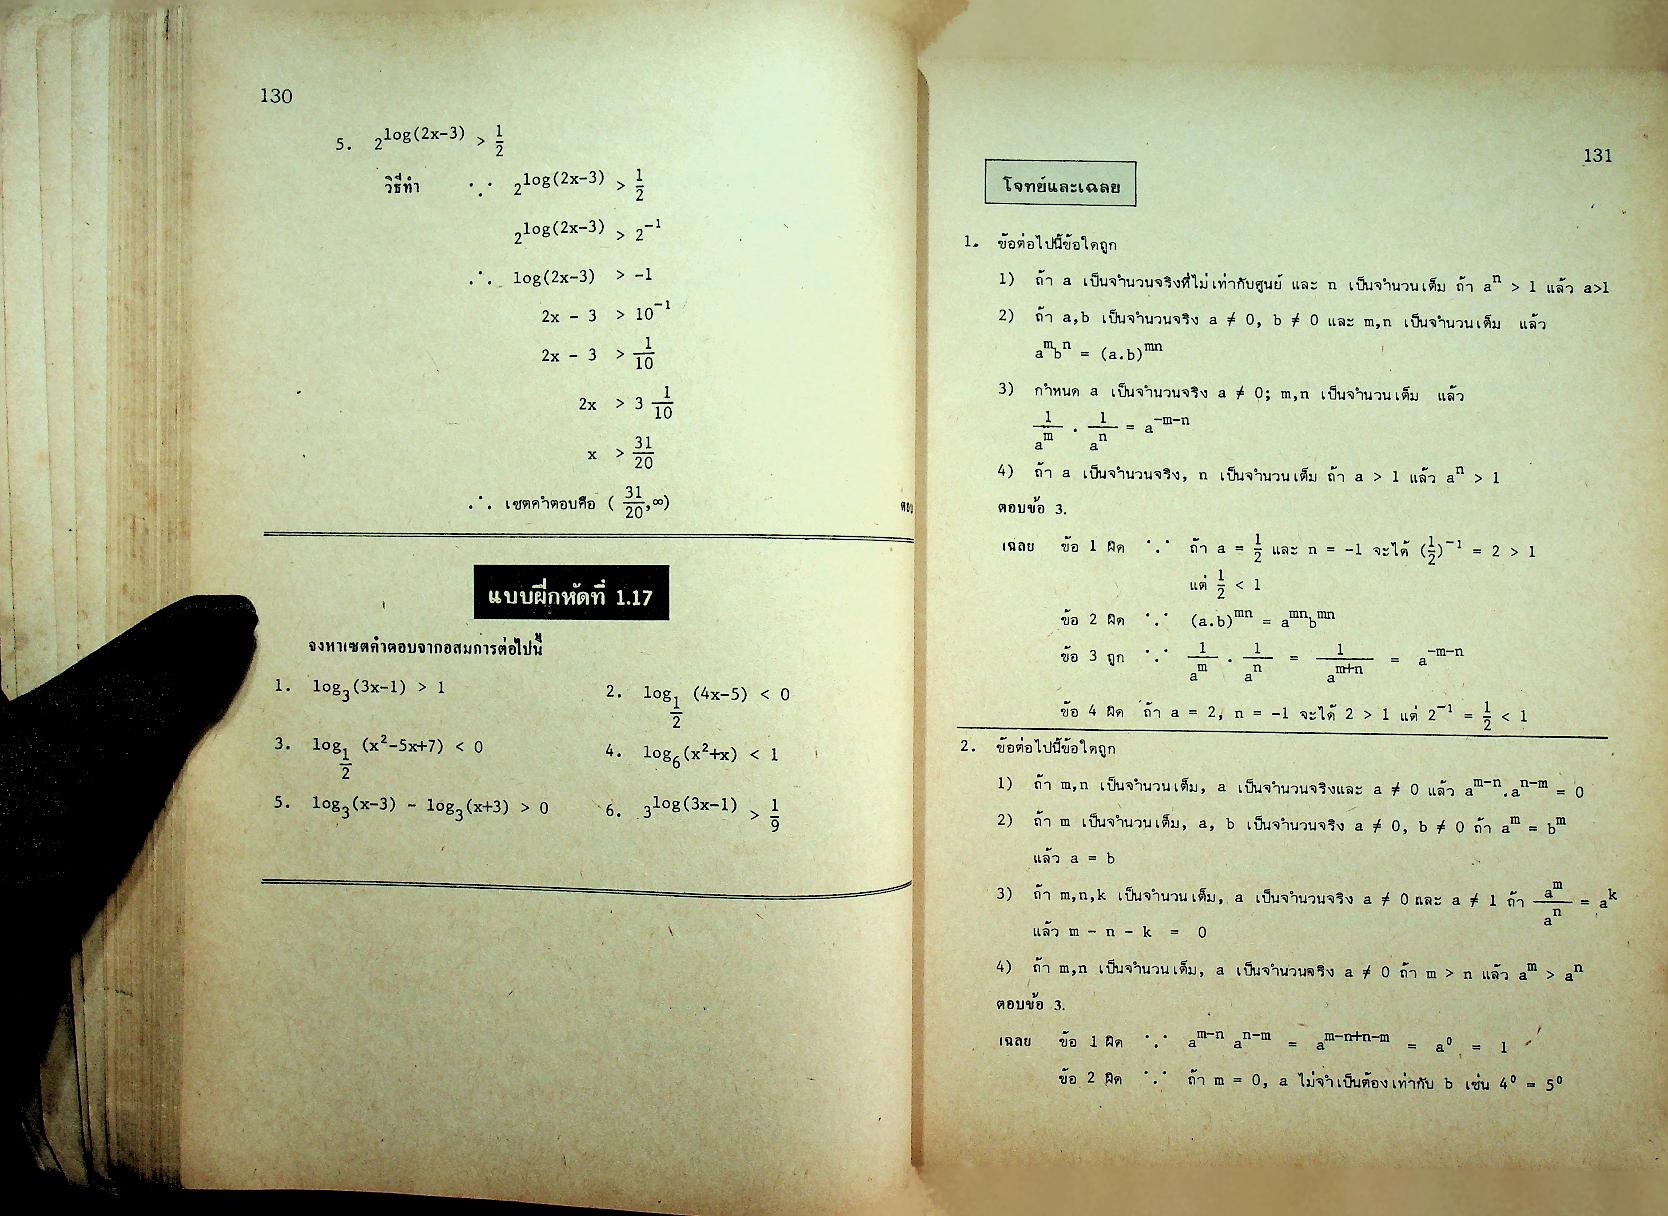 130
5. 2^log(2x-3) > 1/2
วิธีทำ ∵ 2^log(2x-3) > 1/2
2^log(2x-3) > 2⁻¹
∴ log(2x-3) > -1
2x - 3 > 10⁻¹
2x - 3 > 1/10
2x > 3 1/10
x > 31/20
∴ เซตคำตอบคือ (31/20,∞)
แบบฝึกหัดที่ 1.17
จงหาเซตคำตอบจากอสมการต่อไปนี้
1. log₃(3x-1) > 1 2. log_1/2 (4x-5) < 0
3. log_1/2 (x²-5x+7) < 0 4. log₆(x²+x) < 1
5. log₃(x-3) - log₃(x+3) > 0 6. 3^log(3x-1) > 1/9
131
โจทย์และเฉลย
1. ข้อต่อไปนี้ข้อใดถูก
1) ถ้า a เป็นจำนวนจริงที่ไม่เท่ากับศูนย์ และ n เป็นจำนวนเต็ม ถ้า aⁿ > 1 แล้ว a>1
2) ถ้า a,b เป็นจำนวนจริง a ≠ 0, b ≠ 0 และ m,n เป็นจำนวนเต็ม แล้ว
a^m b^n = (a.b)^mn
3) กำหนด a เป็นจำนวนจริง a ≠ 0; m,n เป็นจำนวนเต็ม แล้ว
1/a^m . 1/a^n = a^-m-n
4) ถ้า a เป็นจำนวนจริง, n เป็นจำนวนเต็ม ถ้า a > 1 แล้ว aⁿ > 1
ตอบข้อ 3.
เฉลย ข้อ 1 ผิด ∵ ถ้า a = 1/2 และ n = -1 จะได้ (1/2)⁻¹ = 2 > 1
แต่ 1/2 < 1
ข้อ 2 ผิด ∵ (a.b)^mn = a^mn b^mn
ข้อ 3 ถูก ∵ 1/a^m . 1/a^n = 1/a^m+n = a^-m-n
ข้อ 4 ผิด ถ้า a = 2, n = -1 จะได้ 2 > 1 แต่ 2⁻¹ = 1/2 < 1
2. ข้อต่อไปนี้ข้อใดถูก
1) ถ้า m,n เป็นจำนวนเต็ม, a เป็นจำนวนจริงและ a ≠ 0 แล้ว a^m-n.a^n-m = 0
2) ถ้า m เป็นจำนวนเต็ม, a, b เป็นจำนวนจริง a ≠ 0, b ≠ 0 ถ้า a^m = b^m
แล้ว a = b
3) ถ้า m,n,k เป็นจำนวนเต็ม, a เป็นจำนวนจริง a ≠ 0 และ a ≠ 1 ถ้า a^m/a^n = a^k
แล้ว m - n - k = 0
4) ถ้า m,n เป็นจำนวนเต็ม, a เป็นจำนวนจริง a ≠ 0 ถ้า m > n แล้ว a^m > a^n
ตอบข้อ 3.
เฉลย ข้อ 1 ผิด ∵ a^m-n a^n-m = a^m-n+n-m = a⁰ = 1
ข้อ 2 ผิด ∵ ถ้า m = 0, a ไม่จำเป็นต้องเท่ากับ b เช่น 4⁰ = 5⁰